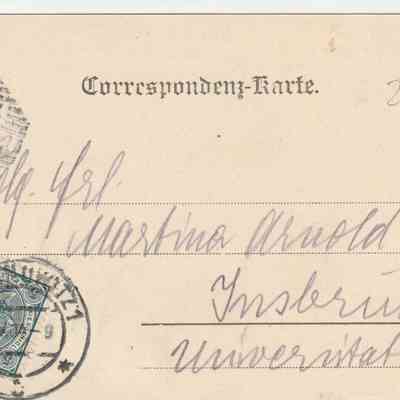 Correspondenz-Karte.
Frl.
Martina Arnold
Insbru
Universität